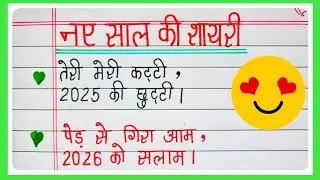 नए साल की शायरी
तेरी मेरी कट्टी ,
2025 की छुट्टी ।
पेड़ से गिरा आम ,
2026 को सलाम ।